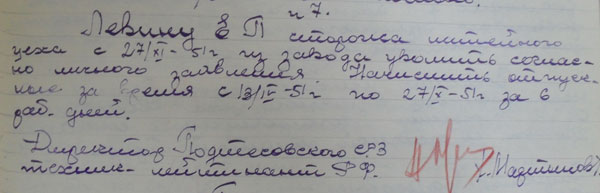 п 7.
Левину Е П сторожа литейного
цеха с 27/XI-51г из завода уволить соглас-
но личного заявления. Начислить отпуск-
ные за время с 13/IX-51г по 27/XI-51г за 6
раб. дней.
Директор Подтесовского СРЗ
техник-лейтинант РФ.